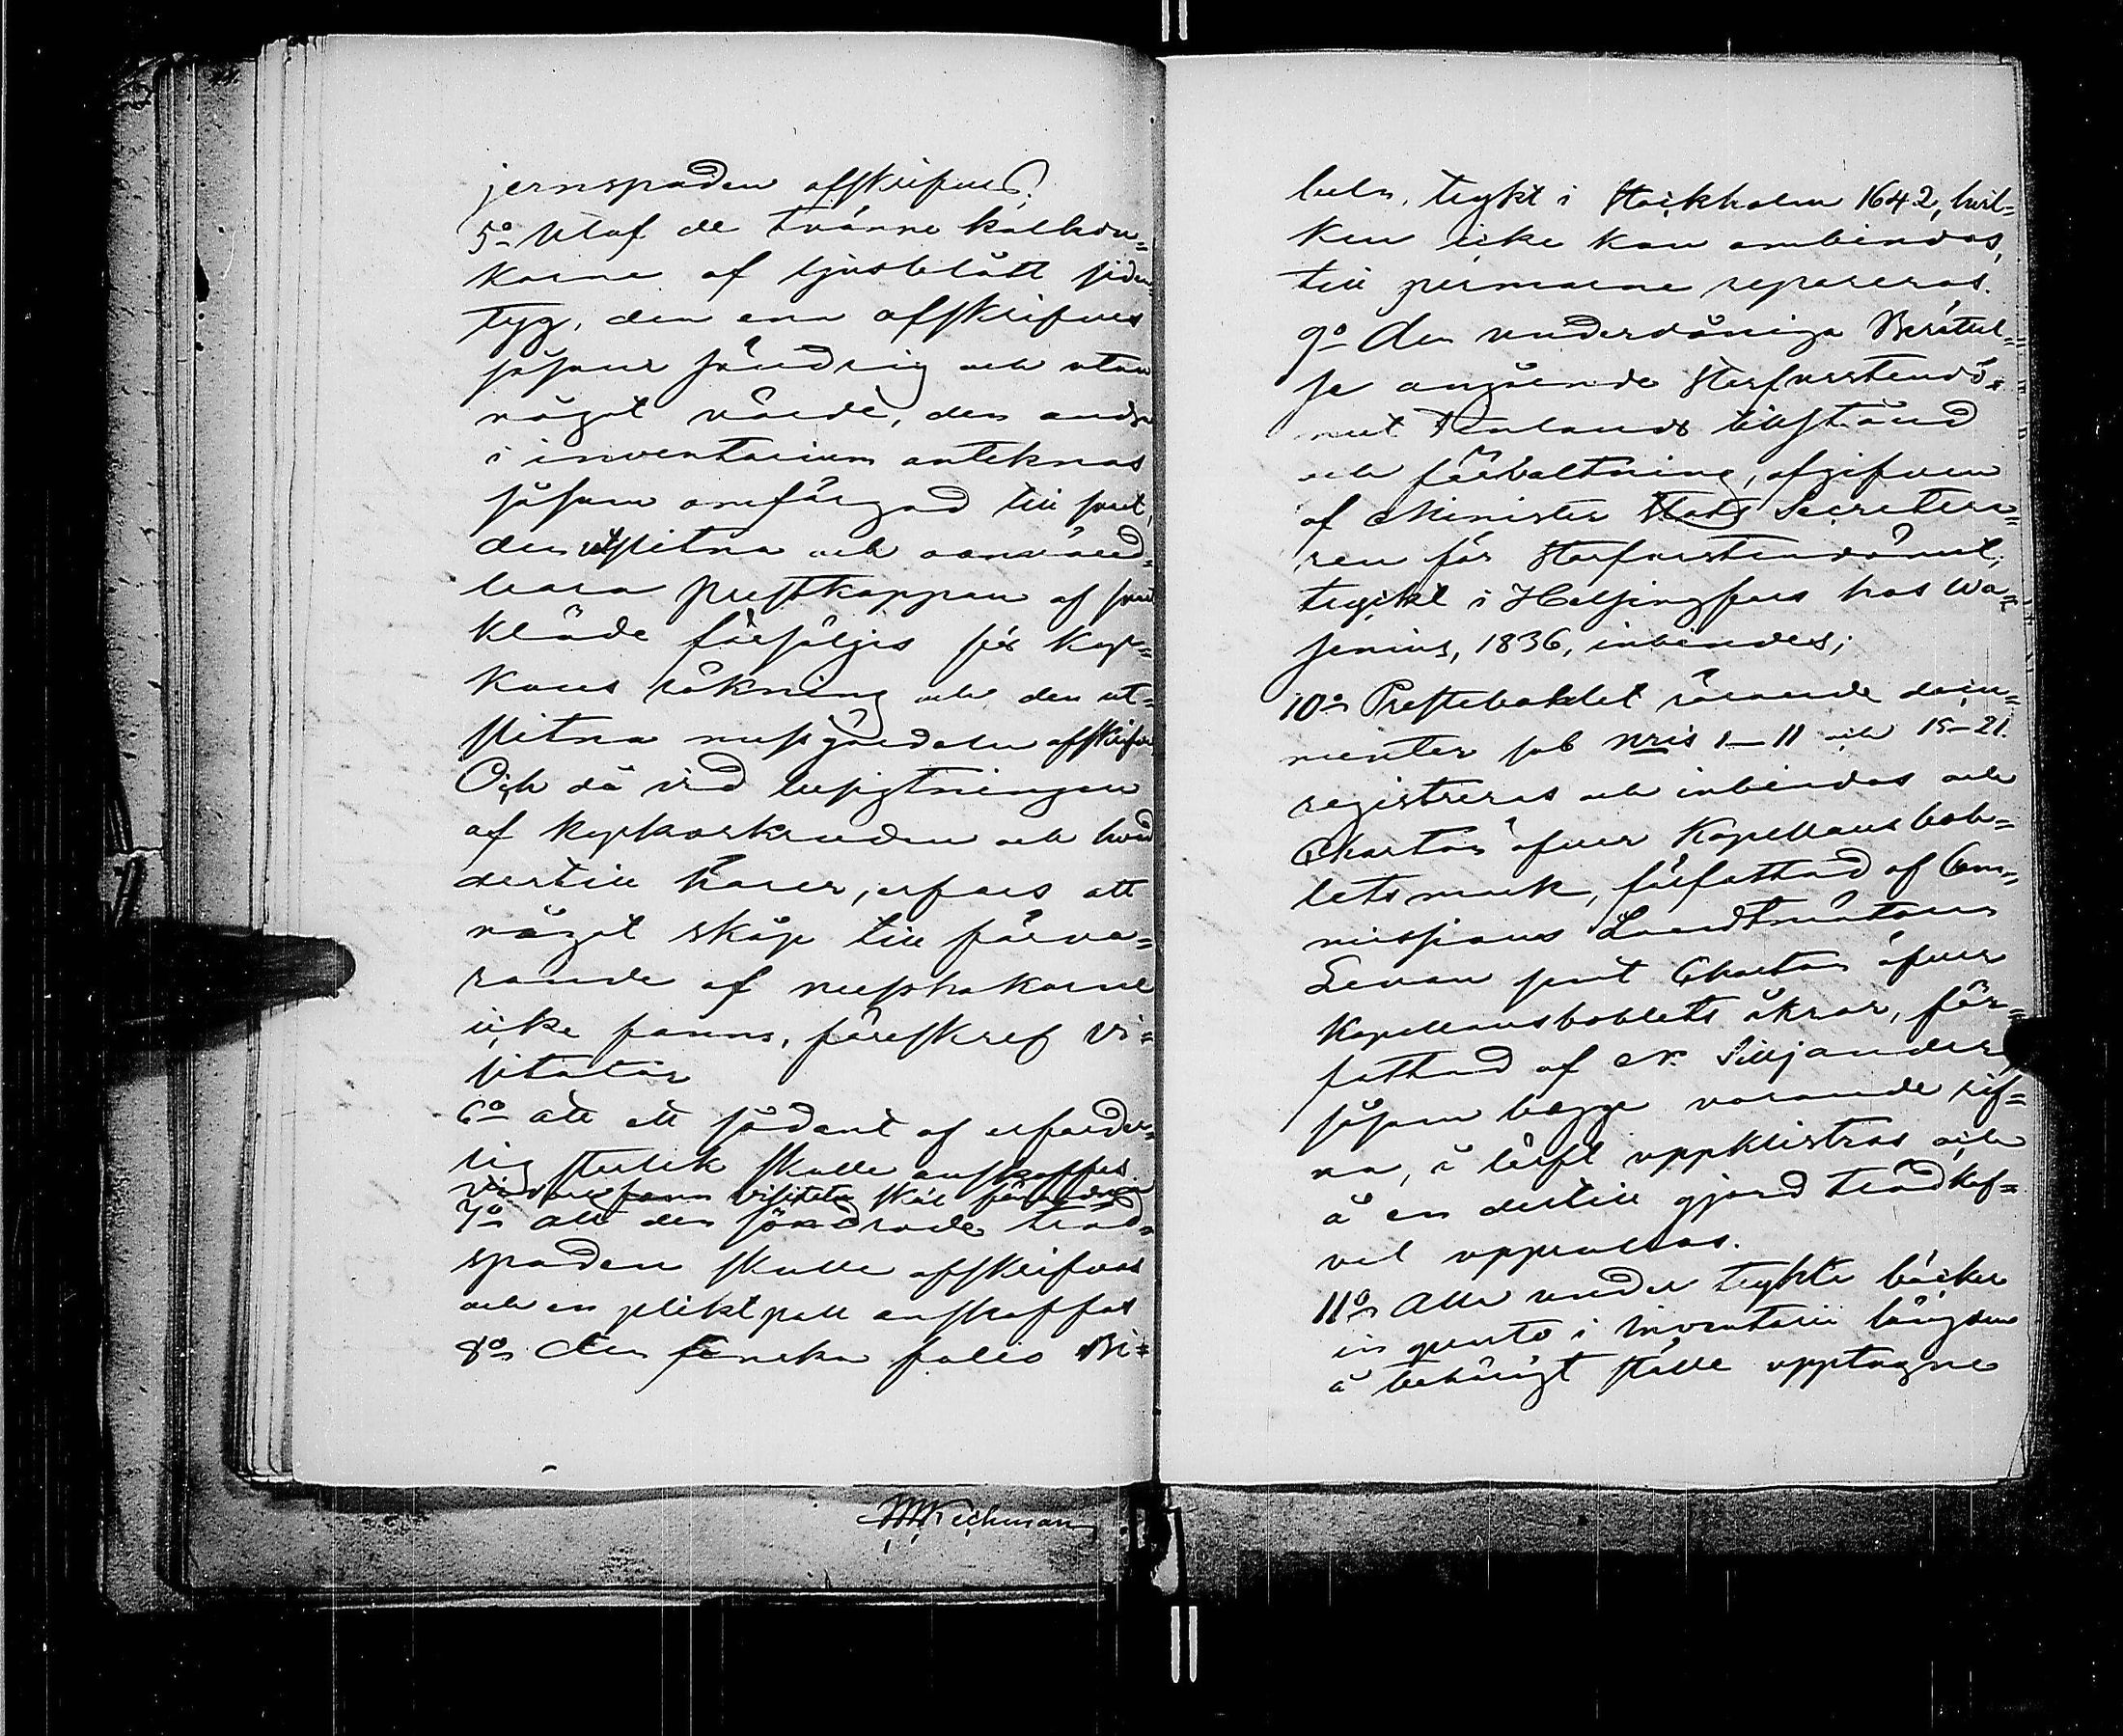 jernspaden afskrifves.
5o Utaf de tvänne kalkdu-
karne af ljusblått siden-
tyg, den ena afskrifves
såsom söndrig och utan
något värde, den andra
i inventarium anteknas
såsom omfärgad till svart,
den utslitna och oanvänd-
bara prestkappan af svart
kläde försäljes för kyr-
kans räkning och den ut-
slitna messgördeln afskrifves
Och då vid besigtningen
af kyrkoskruden och hvad
dertill hörer, erfors att
något skåp till förva-
rande af messhakarne
icke fanns, föreskref Vi-
sitator
6o att ett sådant af erforder-
lig storlek skulle anskaffas.
vidare fann visitator skäl förordna
7o att den söndrade träd-
spaden skulle afskrifvas
och en pliktpall anskaffas
8o den finska folio Bi-
beln, tryckt i Stockholm 1642, hvil-
ken icke kan ombindas,
till permarne repareras.
9o den underdåniga Berättel-
se angående Storfurstendö-
met Finlands tillstånd
och förvaltning, afgifven
af Minister Stats Secretera-
ren för Storfurstendömet,
tryckt i Helsingfors hos Wa-
senius, 1836, inbindes;
10o Prestebohlet rörande docu-
menter sub Nris 1—11 och 15—21.
registreras och inbindas och
Chartan öfver Kapellansboh-
lets mark, författad af Com-
missions Landtmätaren
Levan samt Chartan öfver
Kapellansbohlets åkrar, för-
fattad af N. Silljander,
såsom begge varande rif-
na, å lärft uppklistras och
å en dertill gjord trädkaf-
vel upprullas.
11o Alla under tryckte böcker
in quarto i Inventarii längden
å behörigt ställe upptagne
KKeckman